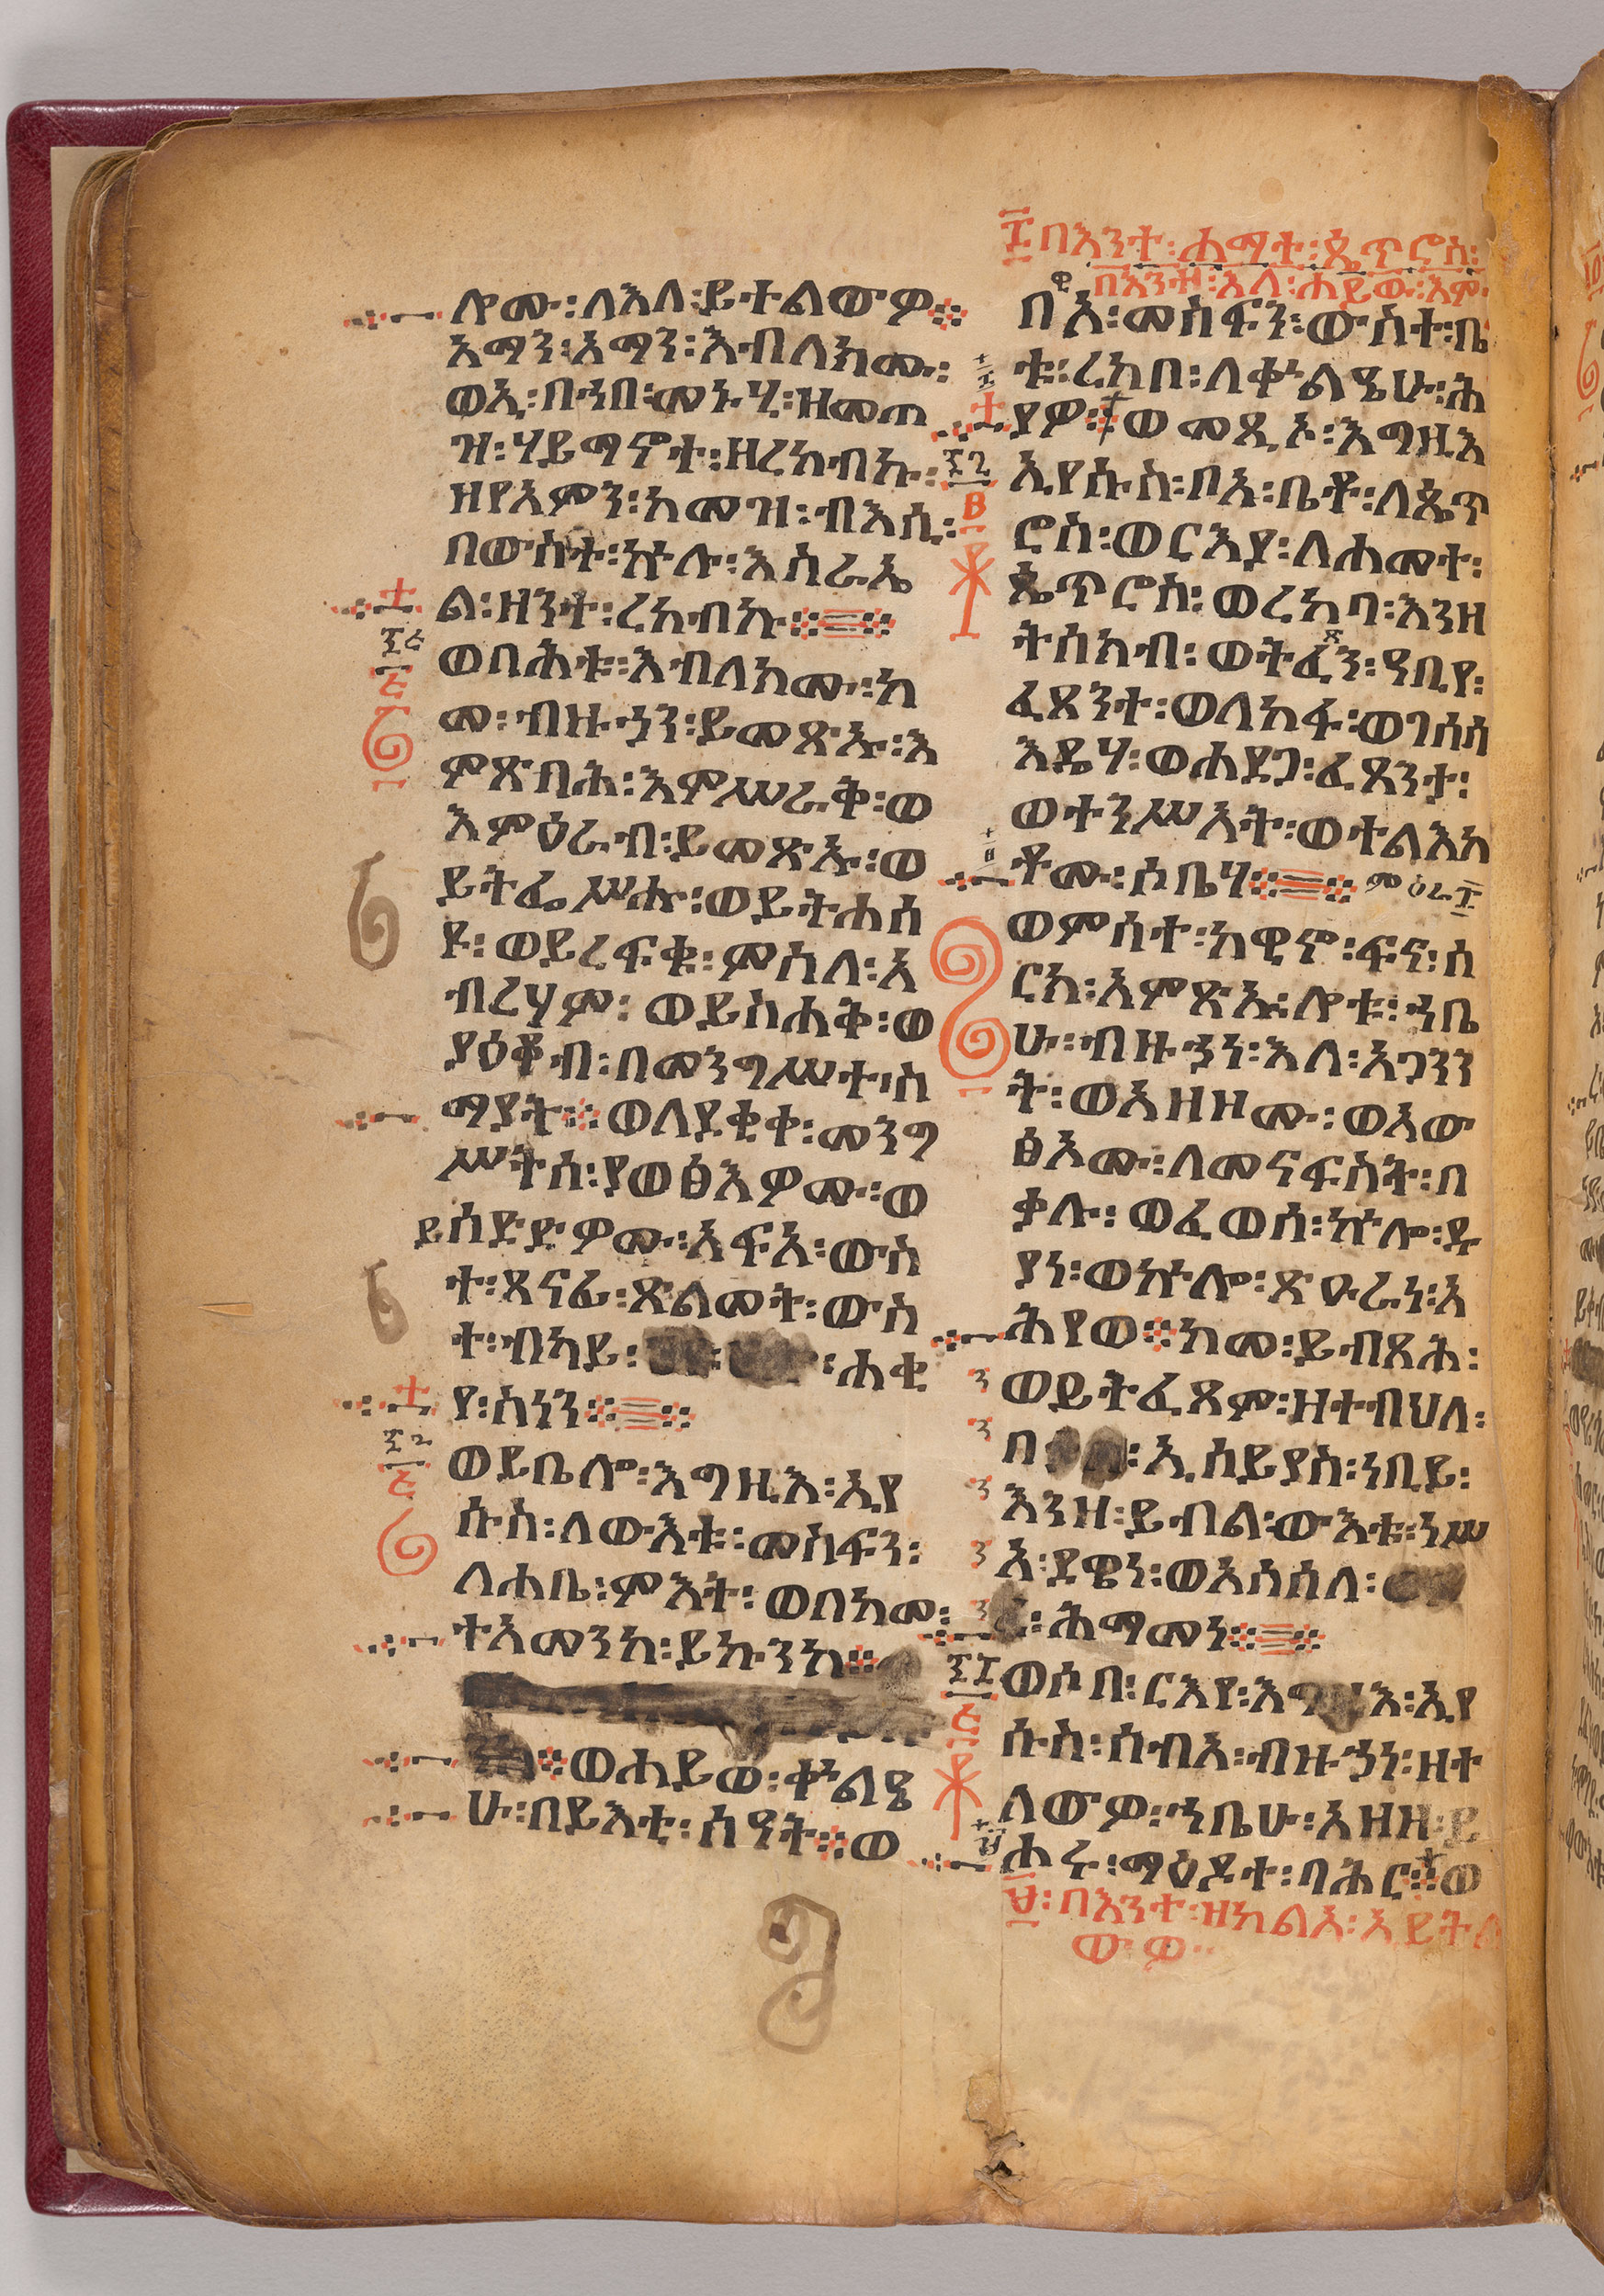 ሎሙ፡ ለእለ፡ ይተልውዎ፨
አማን፡ አማን፡ እብለክሙ፡
ወኢ፡ በኀበ፡ መኑሂ፡ ዘመጠ
ዝ፡ ሃይማኖተ፡ ዘረከብኩ፡
ዘየአምን፡ ከመዝ፡ ብእሲ፡
በውስተ፡ ኵሉ፡ እስራኤ
ል፡ ዘንተ፡ ረከብኩ፨
ወባሕቱ፡ እብለክሙ፡ ከ
መ፡ ብዙኃን፡ ይመጽኡ፡ እ
ምጽባሕ፡ እምሥራቅ፡ ወ
እምዕራብ፡ ይመጽኡ፡ ወ
ይትፌሥሑ፡ ወይትሐሰ
ዩ፡ ወይረፍቁ፡ ምስለ፡ አ
ብረሃም፡ ወይስሐቅ፡ ወ
ያዕቆብ፡ በመንግሥተ፡ ስ
ማያት፨ ወለደቂቀ፡ መንግ
ሥትሰ፡ ያወፅእዎሙ፡ ወ
ይሰድድዎሙ፡ አፍአ፡ ውስ
ተ፡ ጸናፊ፡ ጽልመት፡ ውስ
ተ፡ ብካይ፡ ሐቂ
የ፡ ስነን፨
ወይቤሎ፡ እግዚእ፡ ኢየ
ሱስ፡ ለውእቱ፡ መስፍን፡
ለሐቤ፡ ምእት፡ ወበከመ፡
ተአመንከ፡ ይኩንከ፨
ወሐይወ፡ ቍልዔ
ሁ፡ በይእቲ፡ ሰዓት፨ ወ
፲ በእንተ፡ ሐማተ፡ ጴጥሮስ፡
በእንዘ፡ እለ፡ ሐይዉ፡ እም
በአ፡ መስፍን፡ ውስተ፡ ቤ
ቱ፡ ረከበ፡ ለቍልዔሁ፡ ሕ
ያዎ፨ ወመጺኦ፡ እግዚእ
ኢየሱስ፡ በአ፡ ቤቶ፡ ለጴጥ
ሮስ፡ ወርእያ፡ ለሐመተ፡
ጴጥሮስ፡ ወረከባ፡ እንዘ
ትሰክብ፡ ወትፈጽን፡ ዓቢየ፡
ፈጸንተ፡ ወለከፋ፡ ወገሰሰ
እዴሃ፡ ወሐደጋ፡ ፈጸንታ፡
ወተንሥአት፡ ወተልእከ
ቶሙ፡ ሶቤሃ፨ ምዕራ ፲
ወምሰተ፡ ከዊኖ፡ ፍና፡ ሰ
ርክ፡ አምጽኡ፡ ሎቱ፡ ኀቤ
ሁ፡ ብዙኃነ፡ እለ፡ አጋንን
ት፡ ወአዘዞሙ፡ ወአው
ፅአሙ፡ ለመናፍስት፡ በ
ቃሉ፡ ወፈወሰ፡ ኵሎ፡ ዱ
ያነ፡ ወኵሎ፡ ጽዑራነ፡ አ
ሕየወ፨ ከመ፡ ይብጻሕ፡
ወይትፈጸም፡ ዘተብህለ፡
በ ፡ ኢሰይያስ፡ ነቢይ፡
እንዘ፡ ይብል፡ ውእቱ፡ ነሥ
አ፡ ደዌነ፡ ወአሰሰለ፡
፡ ሕማመነ፨
ወሶበ፡ ርእየ፡ እግዚእ፡ ኢየ
ሱስ፡ ሰብአ፡ ብዙኃነ፡ ዘተ
ለውዎ፡ ኀቤሁ፡ አዘዘ፡ ይ
ሐሩ፡ ማዕዶተ፡ ባሕር፨ ወ
፰፡ በእንተ፡ ዝክልአ፡ ኢይትል
ውዎ